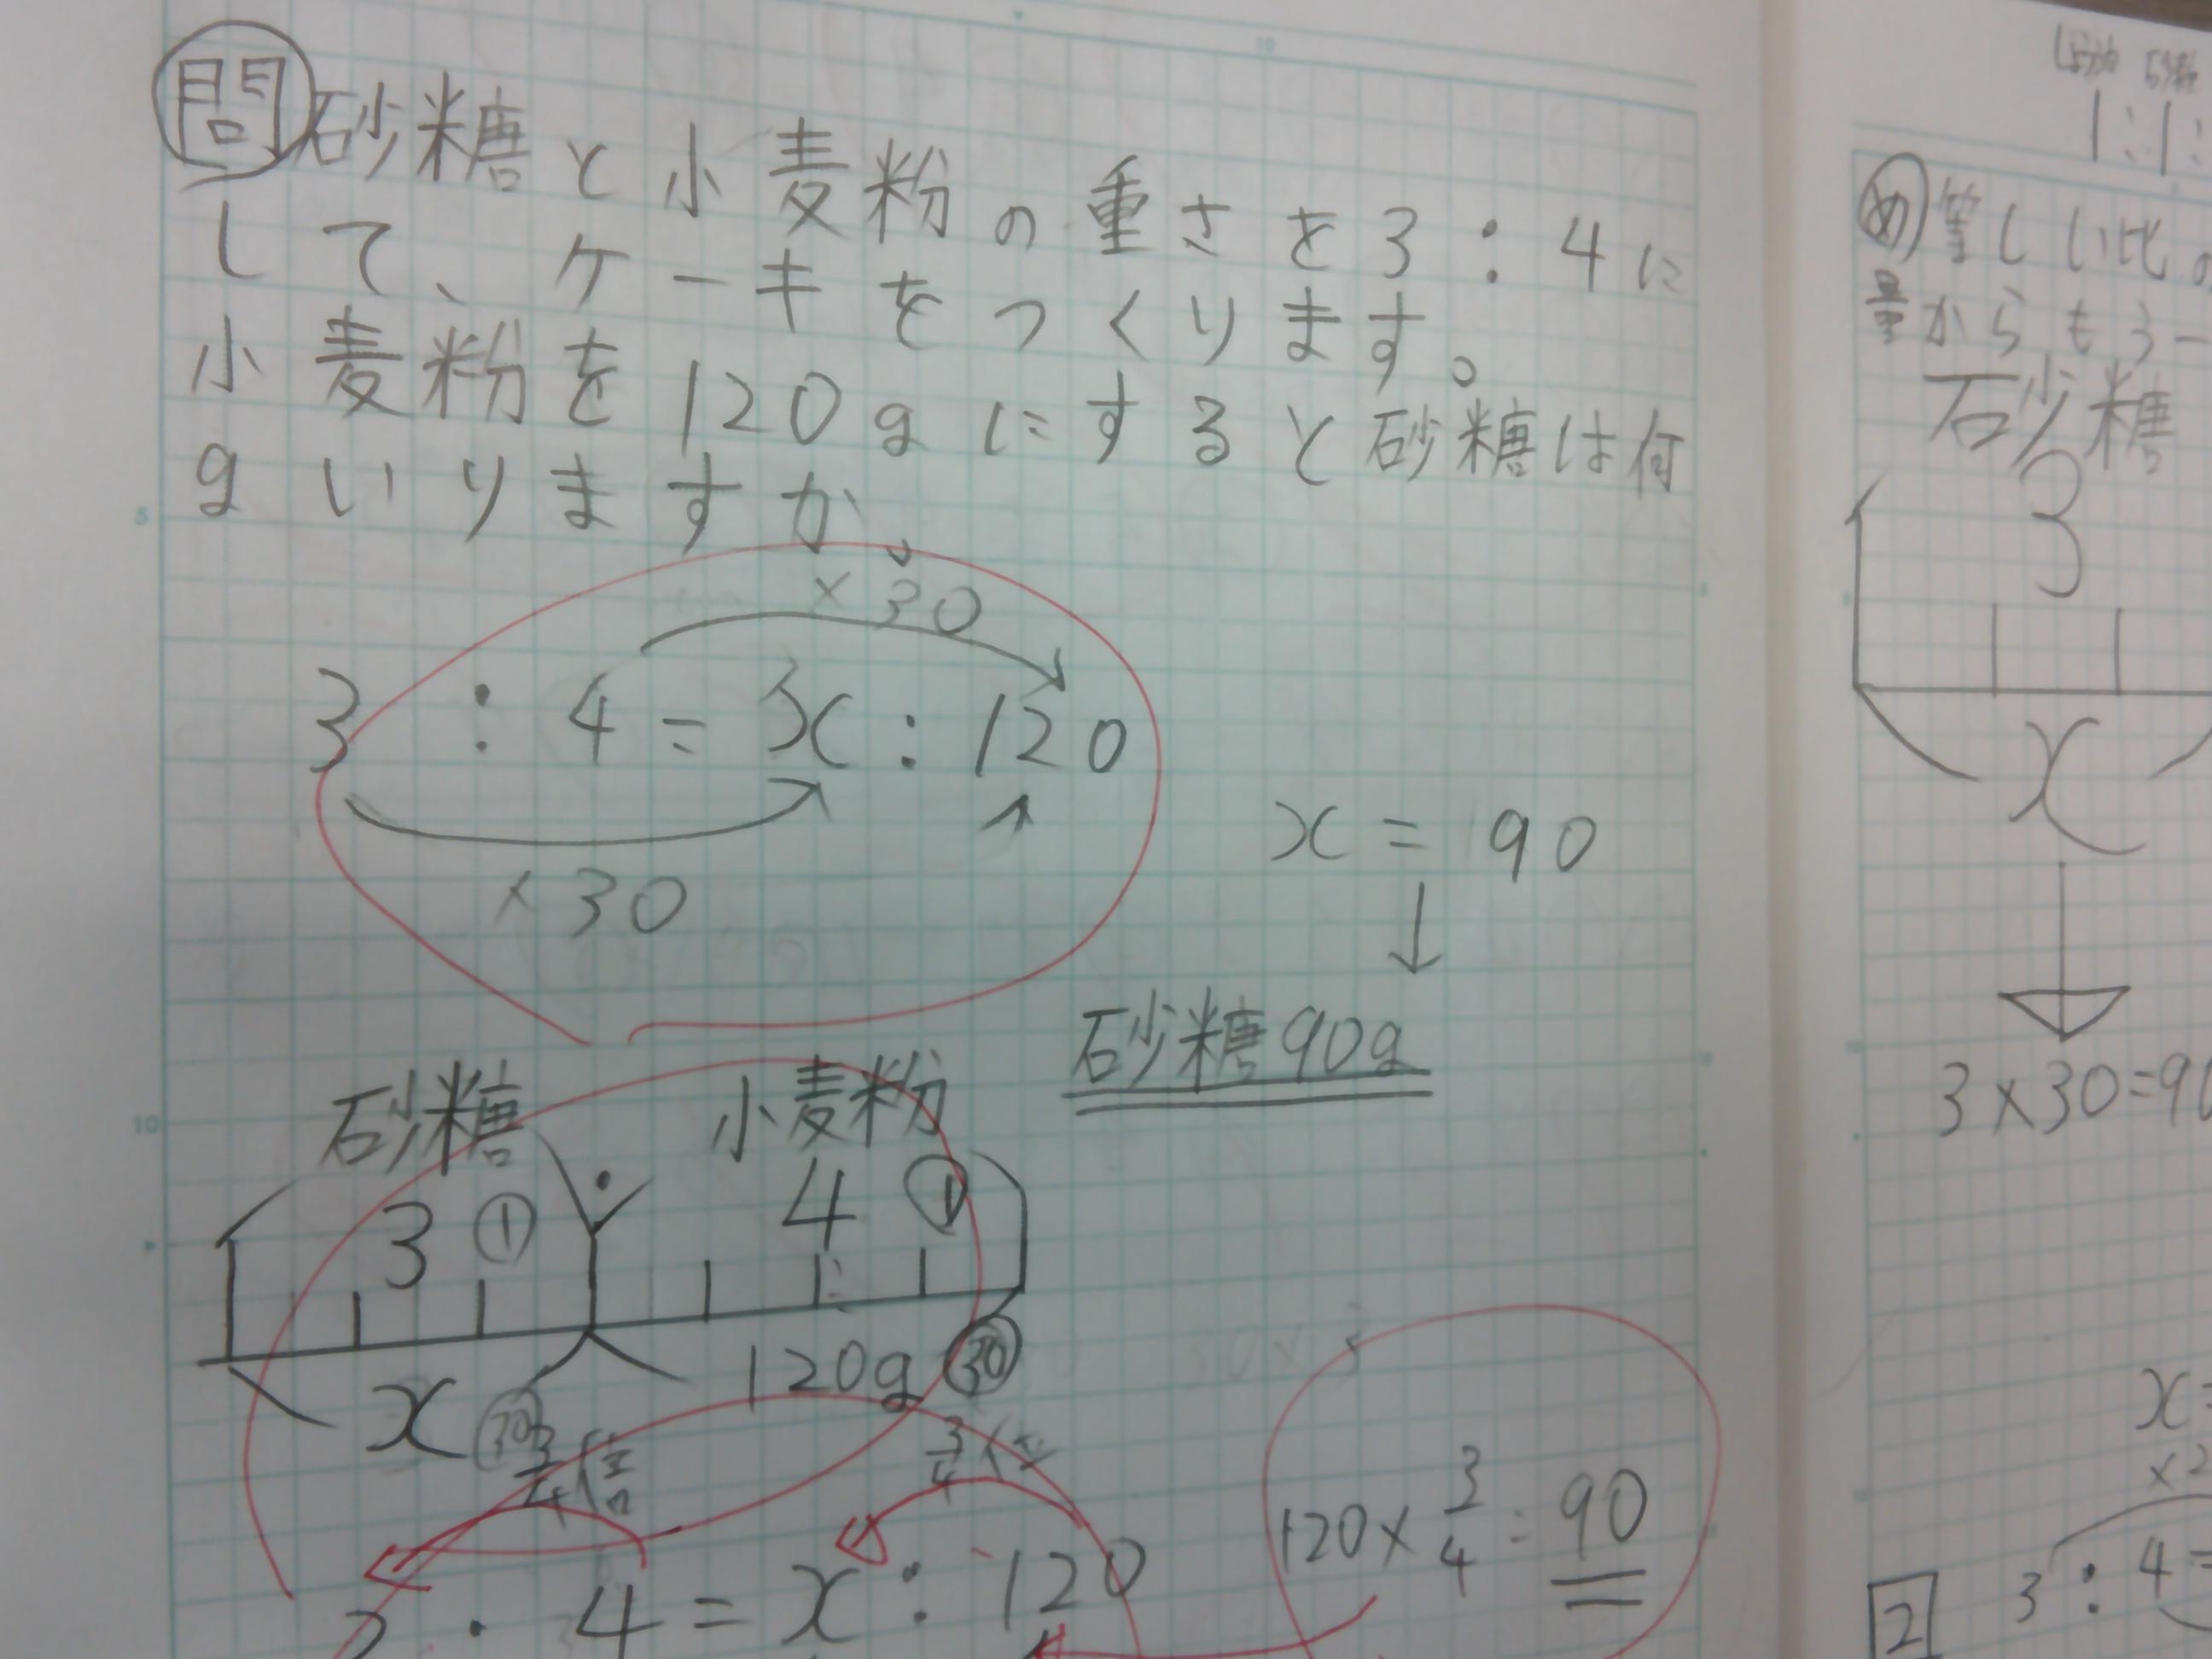 問 砂糖と小麦粉の重さを3:4に
して、ケーキをつくります。
小麦粉を120gにすると砂糖は何
gいりますか。
×30
3:4=x:120
×30
x=90
↓
砂糖90g
砂糖 小麦粉
3 ① 4 ①
x ㉚ 120g ㉚
3/4倍 3/4倍
:4=x:120
120×3/4=90
5
10
10
1:1:
め 等しい比の
量からもう一
砂糖
3
x
3×30=90
x=
×2
2 3:4=